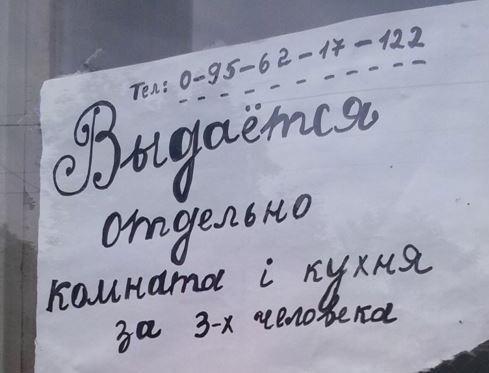 Тел: 0-95-62-17-122
Выдаётся
отдельно
комната і кухня
за 3-х человека